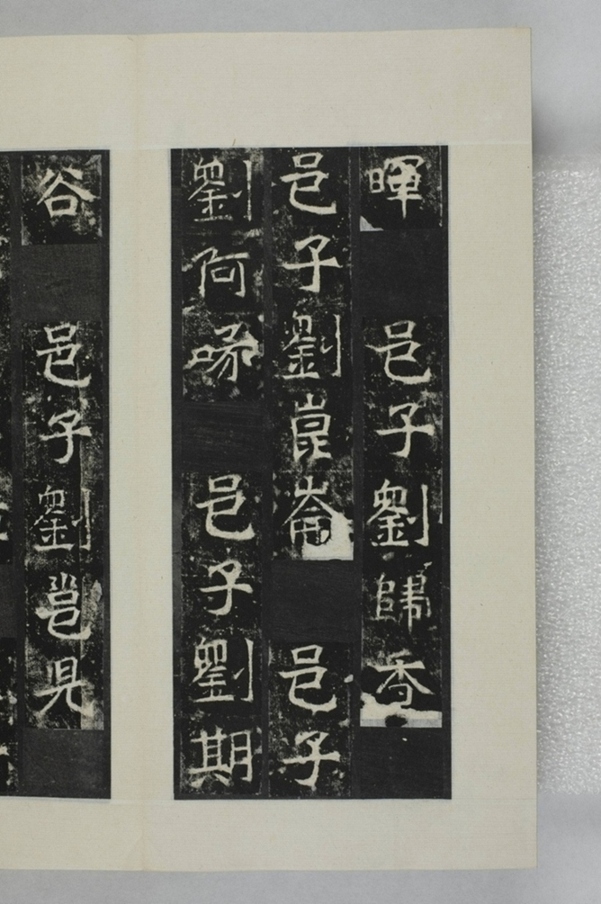 暉 邑子劉歸香
邑子劉崑崙 邑子
劉阿㖨 邑子劉期
谷 邑子劉邕兒